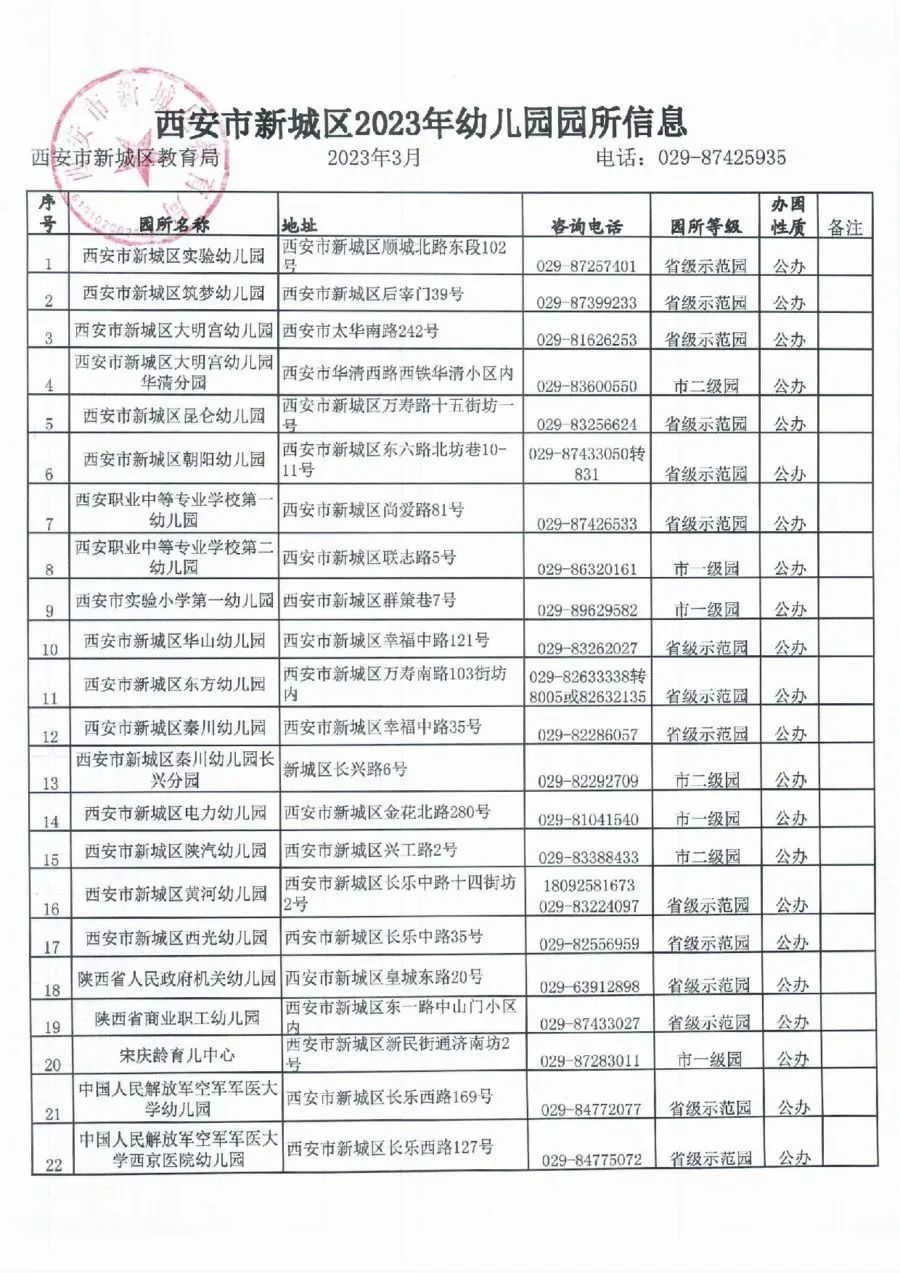 西安市新城区2023年幼儿园园所信息
西安市新城区教育局 2023年3月 电话：029-87425935
序号 园所名称 地址 咨询电话 园所等级 办园性质 备注
1 西安市新城区实验幼儿园 西安市新城区顺城北路东段102号 029-87257401 省级示范园 公办
2 西安市新城区筑梦幼儿园 西安市新城区后宰门39号 029-87399233 省级示范园 公办
3 西安市新城区大明宫幼儿园 西安市太华南路242号 029-81626253 省级示范园 公办
4 西安市新城区大明宫幼儿园华清分园 西安市华清西路西铁华清小区内 029-83600550 市二级园 公办
5 西安市新城区昆仑幼儿园 西安市新城区万寿路十五街坊一号 029-83256624 省级示范园 公办
6 西安市新城区朝阳幼儿园 西安市新城区东六路北坊巷10-11号 029-87433050转831 省级示范园 公办
7 西安职业中等专业学校第一幼儿园 西安市新城区尚爱路81号 029-87426533 省级示范园 公办
8 西安职业中等专业学校第二幼儿园 西安市新城区联志路5号 029-86320161 市一级园 公办
9 西安市实验小学第一幼儿园 西安市新城区群策巷7号 029-89629582 市一级园 公办
10 西安市新城区华山幼儿园 西安市新城区幸福中路121号 029-83262027 省级示范园 公办
11 西安市新城区东方幼儿园 西安市新城区万寿南路103街坊内 029-82633338转8005或82632135 省级示范园 公办
12 西安市新城区秦川幼儿园 西安市新城区幸福中路35号 029-82286057 省级示范园 公办
13 西安市新城区秦川幼儿园长兴分园 新城区长兴路6号 029-82292709 市二级园 公办
14 西安市新城区电力幼儿园 西安市新城区金花北路280号 029-81041540 市一级园 公办
15 西安市新城区陕汽幼儿园 西安市新城区兴工路2号 029-83388433 市二级园 公办
16 西安市新城区黄河幼儿园 西安市新城区长乐中路十四街坊2号 18092581673 029-83224097 省级示范园 公办
17 西安市新城区西光幼儿园 西安市新城区长乐中路35号 029-82556959 省级示范园 公办
18 陕西省人民政府机关幼儿园 西安市新城区皇城东路20号 029-63912898 省级示范园 公办
19 陕西省商业职工幼儿园 西安市新城区东一路中山门小区内 029-87433027 省级示范园 公办
20 宋庆龄育儿中心 西安市新城区新民街通济南坊2号 029-87283011 市一级园 公办
21 中国人民解放军空军军医大学幼儿园 西安市新城区长乐西路169号 029-84772077 省级示范园 公办
22 中国人民解放军空军军医大学西京医院幼儿园 西安市新城区长乐西路127号 029-84775072 省级示范园 公办